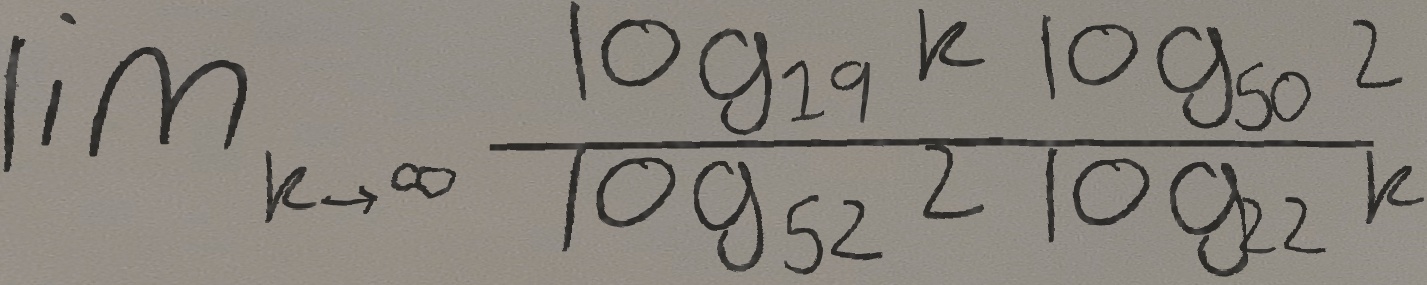 \lim_{k \to \infty} \frac{\log_{19} k \log_{50} 2}{\log_{52} 2 \log_{22} k}